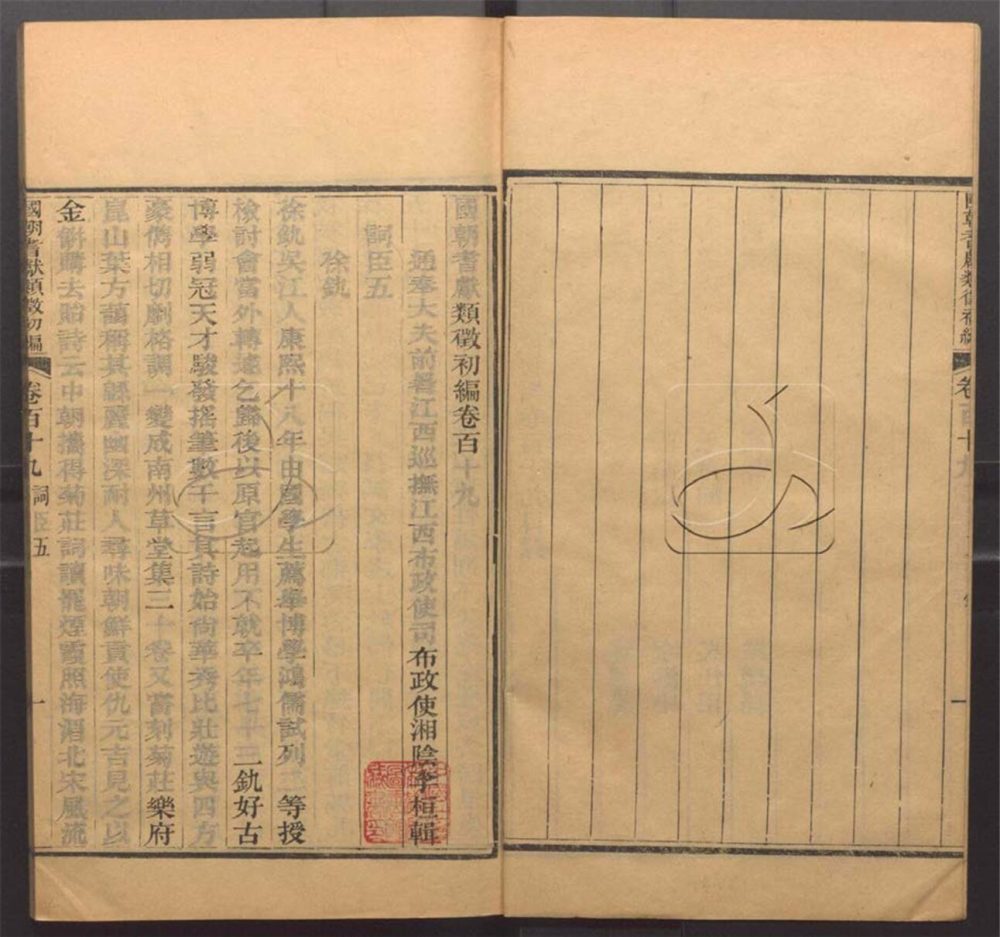 國朝耆獻類徵初編
卷百十九
國朝耆獻類徵初編卷百十九
通奉大夫前署江西巡撫江西布政使司布政使湘陰李桓輯
詞臣五
徐釚
徐釚吳江人康熙十八年由國學生薦舉博學鴻儒試列二等授
檢討會當外轉遽乞歸後以原官起用不就卒年七十三釚好古
博學弱冠天才駿發搖筆數千言其詩始尚華秀比壯遊與四方
豪儁相切劘格調一變成南州草堂集三十卷又嘗刻菊莊樂府
崑山葉方藹稱其緜麗幽深耐人尋味朝鮮貢使仇元吉見之以
金餅購去貽詩云中朝攜得菊莊詞讀罷煙霞照海湄北宋風流
國朝耆獻類徵初編
卷百十九
詞臣五
一